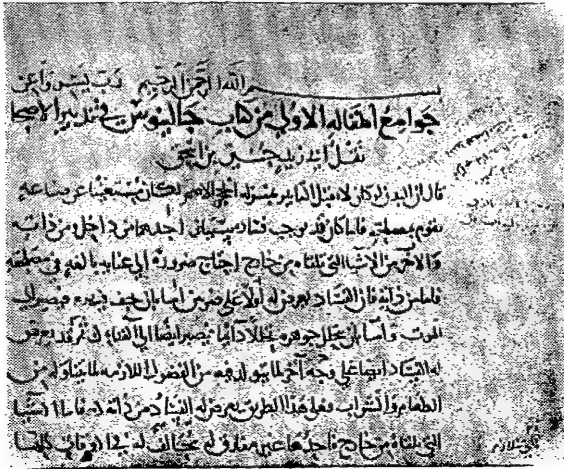 بسم الله الرحمن الرحيم رب يسر واعن
جوامع المقالة الاولى من كتاب جالينوس في تدبير الاصحا
نقل ابي زيد حنين بن اسحق
قال ان البدن لو كان لا يقبل التاثير بمنزلة الحجر الاصم لكان مستغنيا عن صناعة
تقوم بمصلحته فلما كان قد يوجب فساده سببان احدهما من داخل ومن ذاته
والآخر من الاشيا التي تلقاه من خارج احتاج ضرورة الى عناية بالغة في مصلحته
فاما من ذاته فان الفساد يعرض له اولا على ضربين اما بان يجف فيصير الى
الموت واما بان يتحلل جوهره تحللا دايما فيصير ايضا الى الفناء ثم قد يعرض
له الفساد ايضا على وجه آخر لما يتولد فيه من الفضول اللازمة لما يتناوله من
الطعام والشراب وعلى هذا الطريق يعرض له الفساد من ذاته فاما الاشيا
التي تلقاه من خارج فاحدها غير مفارق له